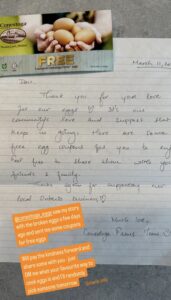 Conestoga
FREE
March 11, 20
Dear
Thank you for your love
for our eggs ♡ It's our
community's love and support that
keeps us going! Here are some
free egg coupons for you to enjoy
feel free to share them with your
friends & family.
Thanks again for supporting our
local Ontario business, ♡
Much love,
Conestoga Farms Team
@conestoga_eggs saw my story
with the broken eggs a few days
ago and sent me some coupons
for free eggs
Will pay the kindness forward and
share some with you - just
DM me what your favourite way to
cook eggs is and I'll randomly
pick someone tomorrow